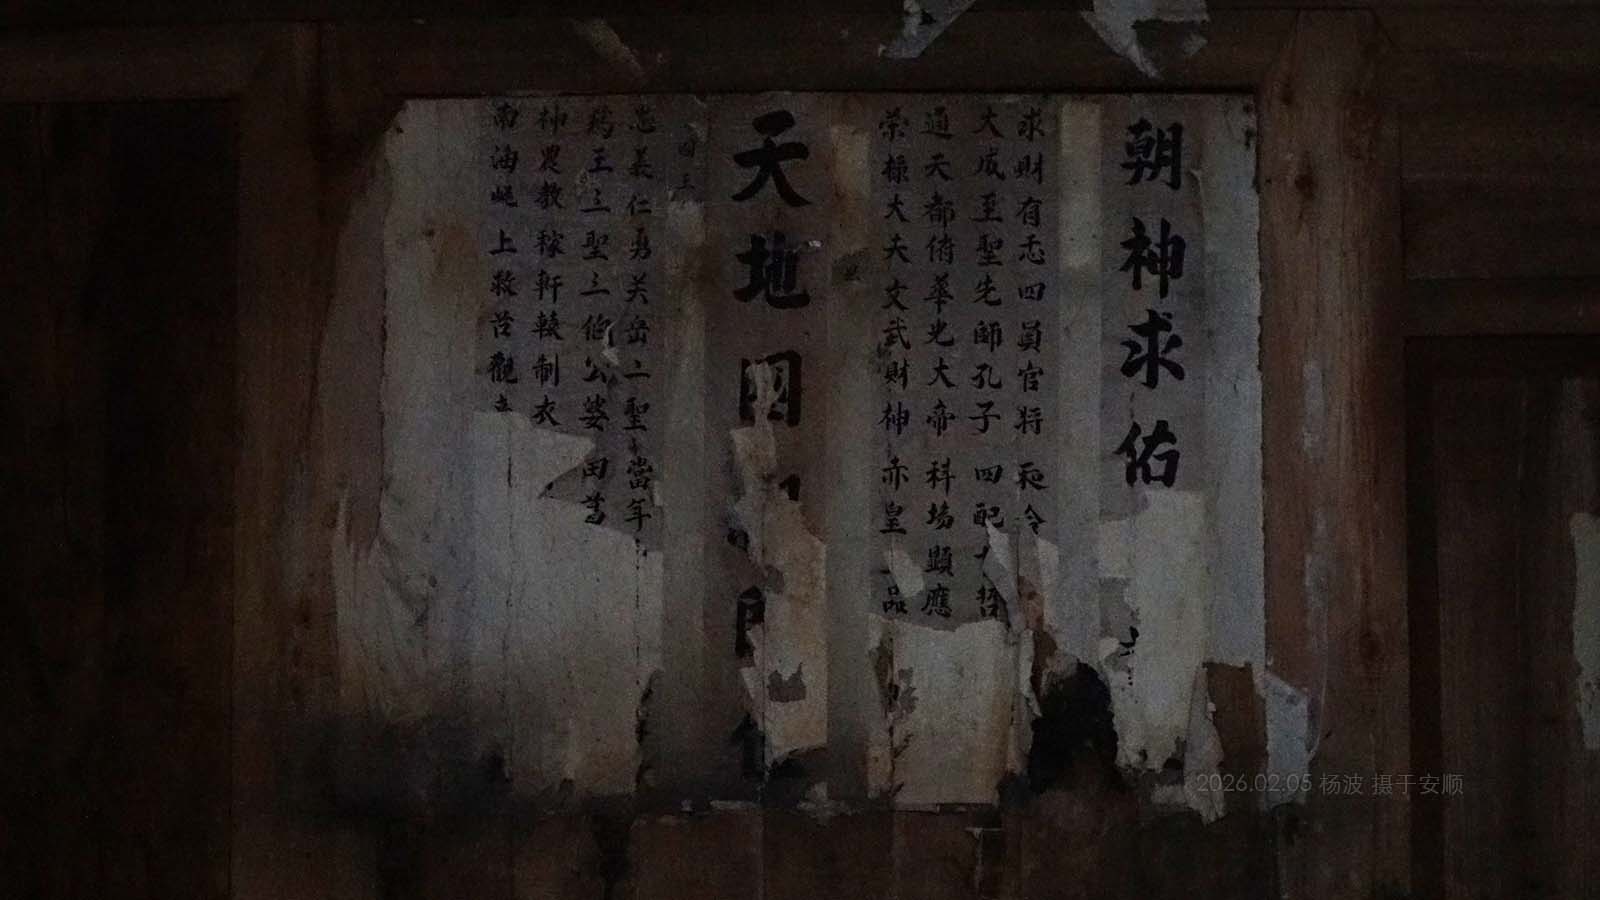 朝神求佑
求財有志四員官将 和合
大成至聖先師孔子 四配十哲
通天都府華光大帝 科場顯應
榮祿大夫文武財神 赤皇 品
天地国
忠義仁勇关岳二聖 當年
三聖三伯公婆 田
神農教稼軒轅制衣
南海 上救苦觀音
2026.02.05 杨波 摄于安顺